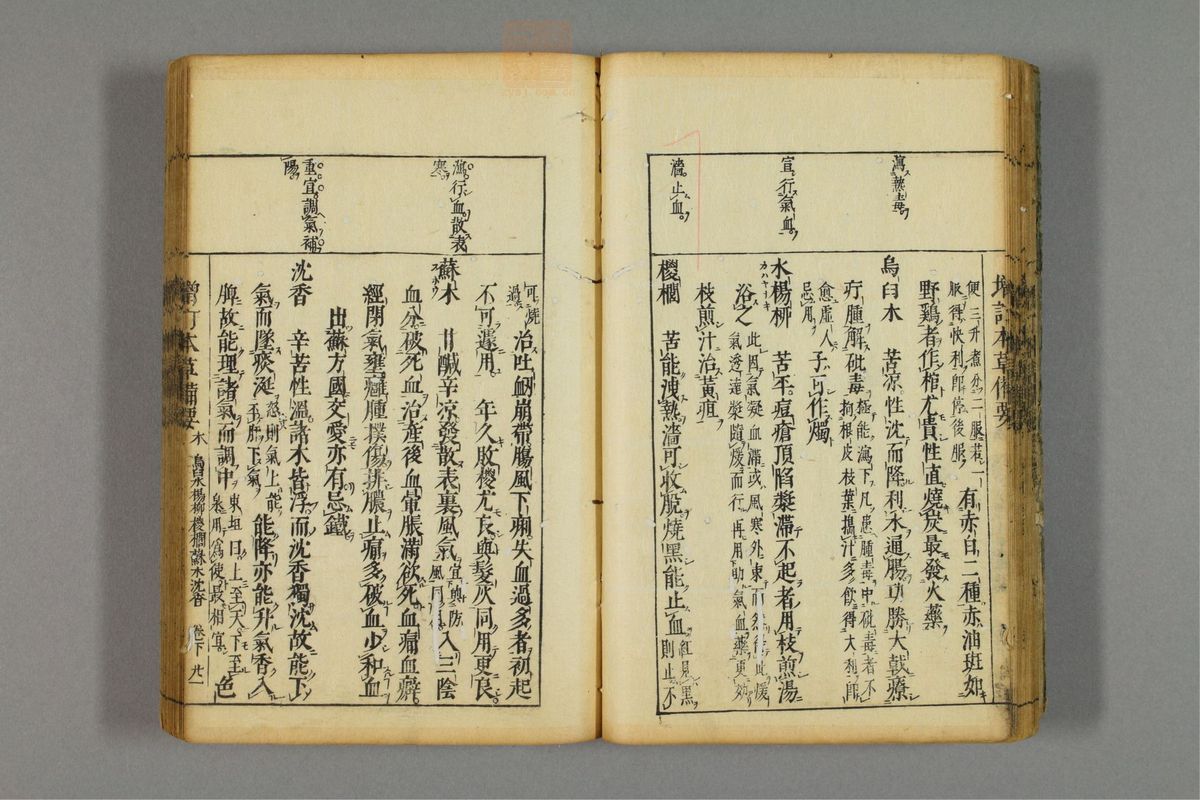 增訂本草備要
便三升煮分二服若一服得快利即停後服
有赤白二種赤油斑如
野鷄者作棺尤貴性直燒炭最發火藥
瀉熱毒
烏臼木 苦涼性沈而降利水通腸功勝大戟療
疔腫解砒毒極能瀉下凡患腫毒中砒毒者不拘根皮枝葉搗汁多飲得大利即
愈虛人忌用 子可作燭
宣行氣血
水楊柳 苦平痘瘡頂陷漿滯不起者用枝煎湯
カハヤナキ
浴之此因氣凝血滯或風寒外束而然得此煖氣透達漿隨煖而行再用助氣血藥更妙
枝煎汁治黃疸
濇止血
椶櫚 苦能洩熱濇可收脫燒黑能止血紅見黑則止不
可燒過 治吐衄崩帶腸風下痢失血過多者初起
不可遽用 年久敗椶尤良與髮灰同用更良
瀉行血散表寒
蘇木 甘鹹辛涼發散表裏風氣宜與防風同用 入三陰
スホウ
血分破死血治產後血暈脹滿欲死血痛血癖
經閉氣壅癰腫撲傷排膿止痛多破血少和血
出蘇方國交愛亦有忌鐵
重宜調氣補陽
沈香 辛苦性溫諸木皆浮而沈香獨沈故能下
氣而墜痰涎怒則氣上能平肝下氣 能降亦能升氣香入
脾故能理諸氣而調中東垣曰上至天下至泉用爲使最相宜 色
增訂本草備要 木 烏臼楊柳椶櫚蘇木沈香 卷下 廿一